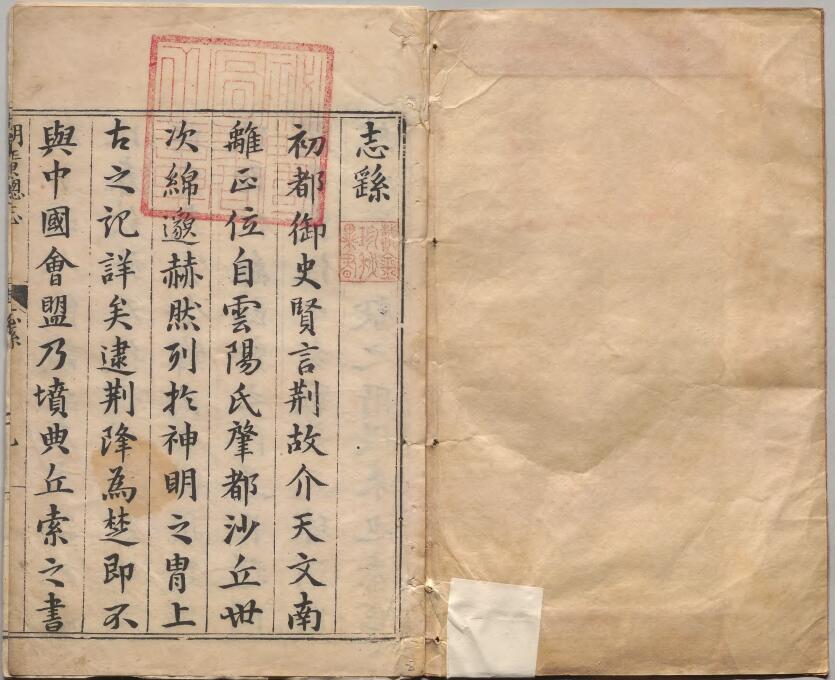 志繇
初都御史賢言荆故介天文南
離正位自雲陽氏肇都沙丘世
次綿邈赫然列扵神明之胄上
古之記詳矣逮荆降為楚即不
與中國會盟乃墳典丘索之書